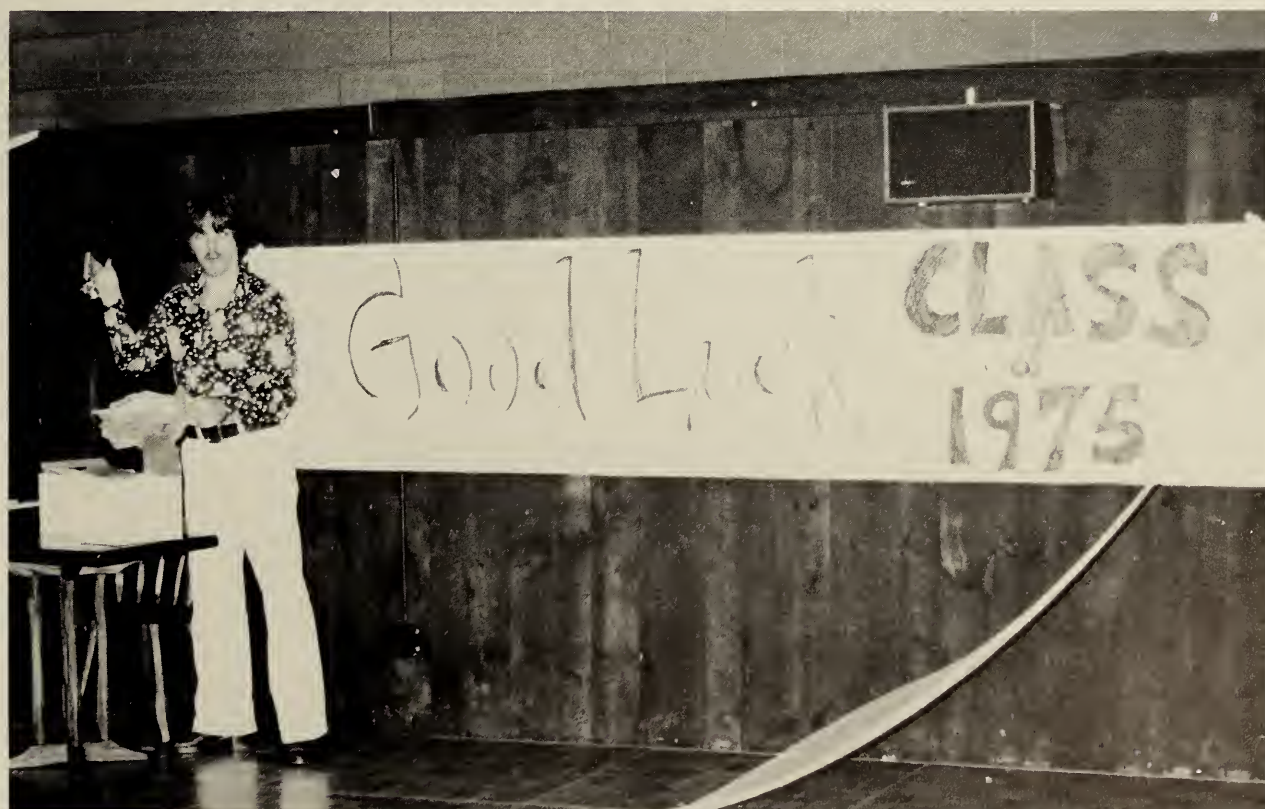 Good Luck
CLASS
1975